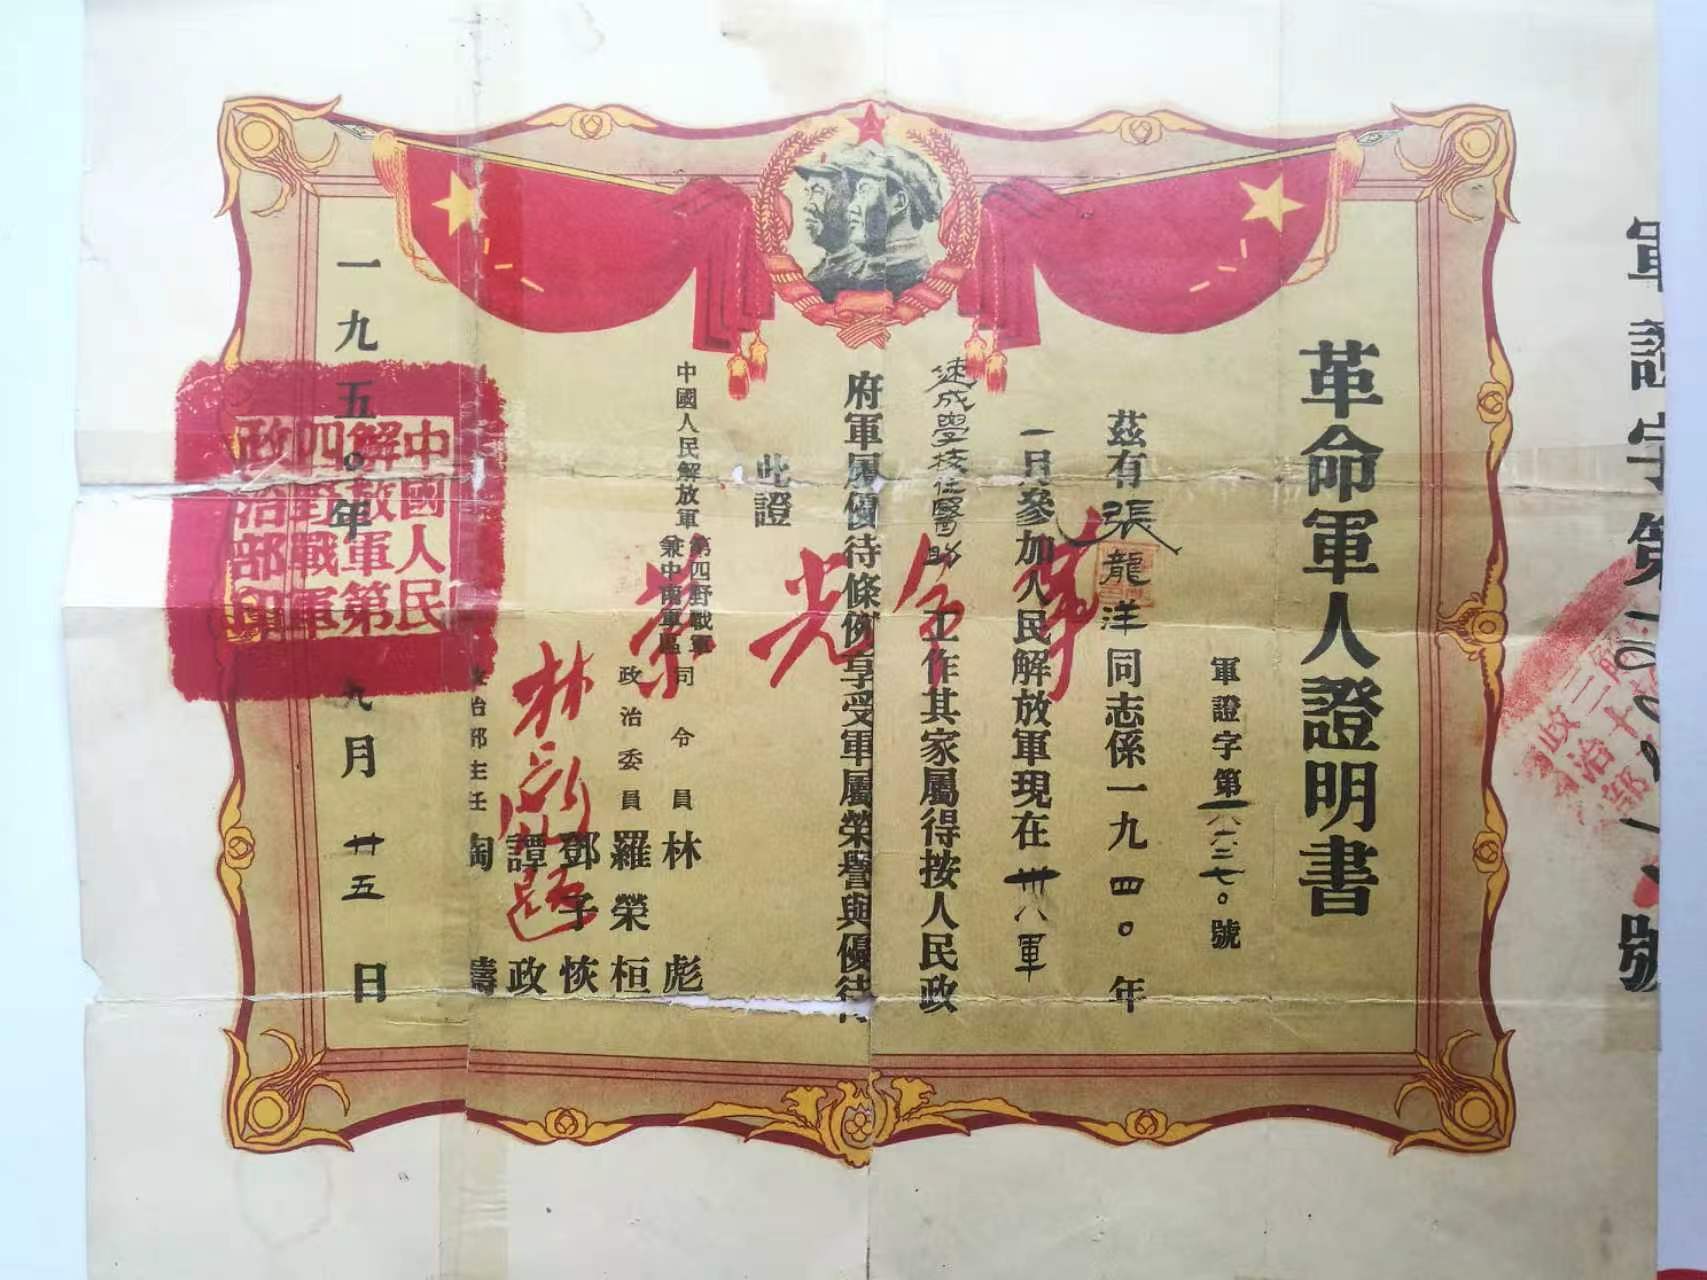 革命軍人證明書
軍證字第一八六二七〇號
茲有張龍洋同志係一九四〇年
一月參加人民解放軍現在卅八軍
速成學校任醫助工作其家屬得按人民政
府軍屬優待條例享受軍屬榮譽與優待
此證
軍令光榮
中國人民解放軍第四野戰軍兼中南軍區
司令員林彪
政治委員羅榮桓
鄧子恢
譚政
政治部主任陶鑄
林彪題
一九五〇年九月廿五日
中國人民
解放軍第
四野戰軍
政治部印
軍證字第
號
政治部